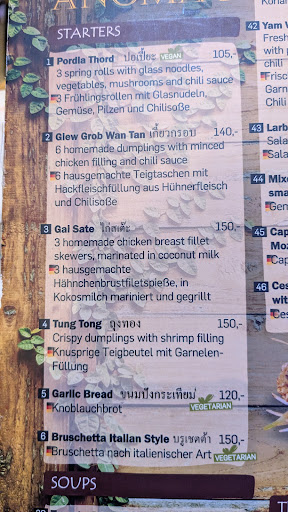 STARTERS
1 Pordia Thord ปอเปี๊ยะ VEGAN 105,-
3 spring rolls with glass noodles,
vegetables, mushrooms and chili sauce
3 Frühlingsrollen mit Glasnudeln,
Gemüse, Pilzen und Chilisoße
2 Giew Grob Wan Tan เกี๊ยวกรอบ 140,-
6 homemade dumplings with minced
chicken filling and chili sauce
6 hausgemachte Teigtaschen mit
Hackfleischfüllung aus Hühnerfleisch
und Chilisoße
3 Gai Sate ไก่สเต๊ะ 150,-
3 homemade chicken breast fillet
skewers, marinated in coconut milk
3 hausgemachte
Hähnchenbrustfiletspieße, in
Kokosmilch mariniert und gegrillt
4 Tung Tong ถุงทอง 150,-
Crispy dumplings with shrimp filling
Knusprige Teigbeutel mit Garnelen-
Füllung
5 Garlic Bread ขนมปังกระเทียม 120,-
Knoblauchbrot VEGETARIAN
6 Bruschetta Italian Style บรูเชตต้า 150,-
Bruschetta nach italienischer Art VEGETARIAN
SOUPS
42
Fresh
with
and p
Garn
Chili
43 Larb
Salad
Salat
44 Mixe
45 Cap
Moz
Cap
46 Ces
with
Ces